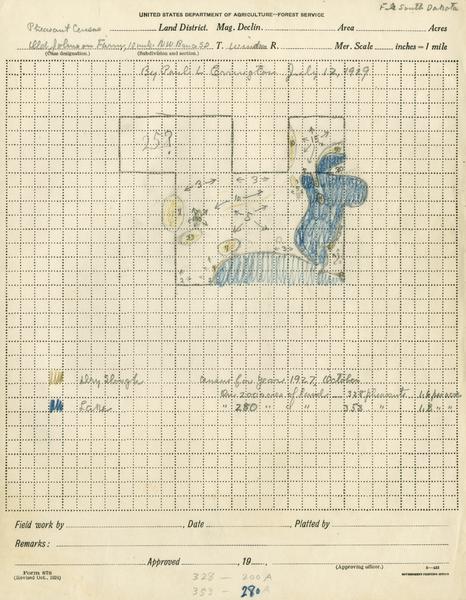 File South Dakota
UNITED STATES DEPARTMENT OF AGRICULTURE—FOREST SERVICE
Pheasant Census Land District. Mag. Declin. Area Acres
Old Johnson Farm, 10 mi. N.W. S.D. T. R. Mer. Scale inches = 1 mile
(Case designation.) (Subdivision and section.)
By Paul L. Errington July 12, 1929
25?
15
3 3
10
7
5
3
Dry Slough Census for year 1927, October
On 200 acres of land - 328 pheasants 1.6 per acre
Lake " 280 " " " 353 " 1.3 " "
Field work by , Date Platted by
Remarks:
Approved , 19
(Approving officer.)
Form 878
(Revised Oct., 1924)
GOVERNMENT PRINTING OFFICE
328 - 200 A
353 - 280 A